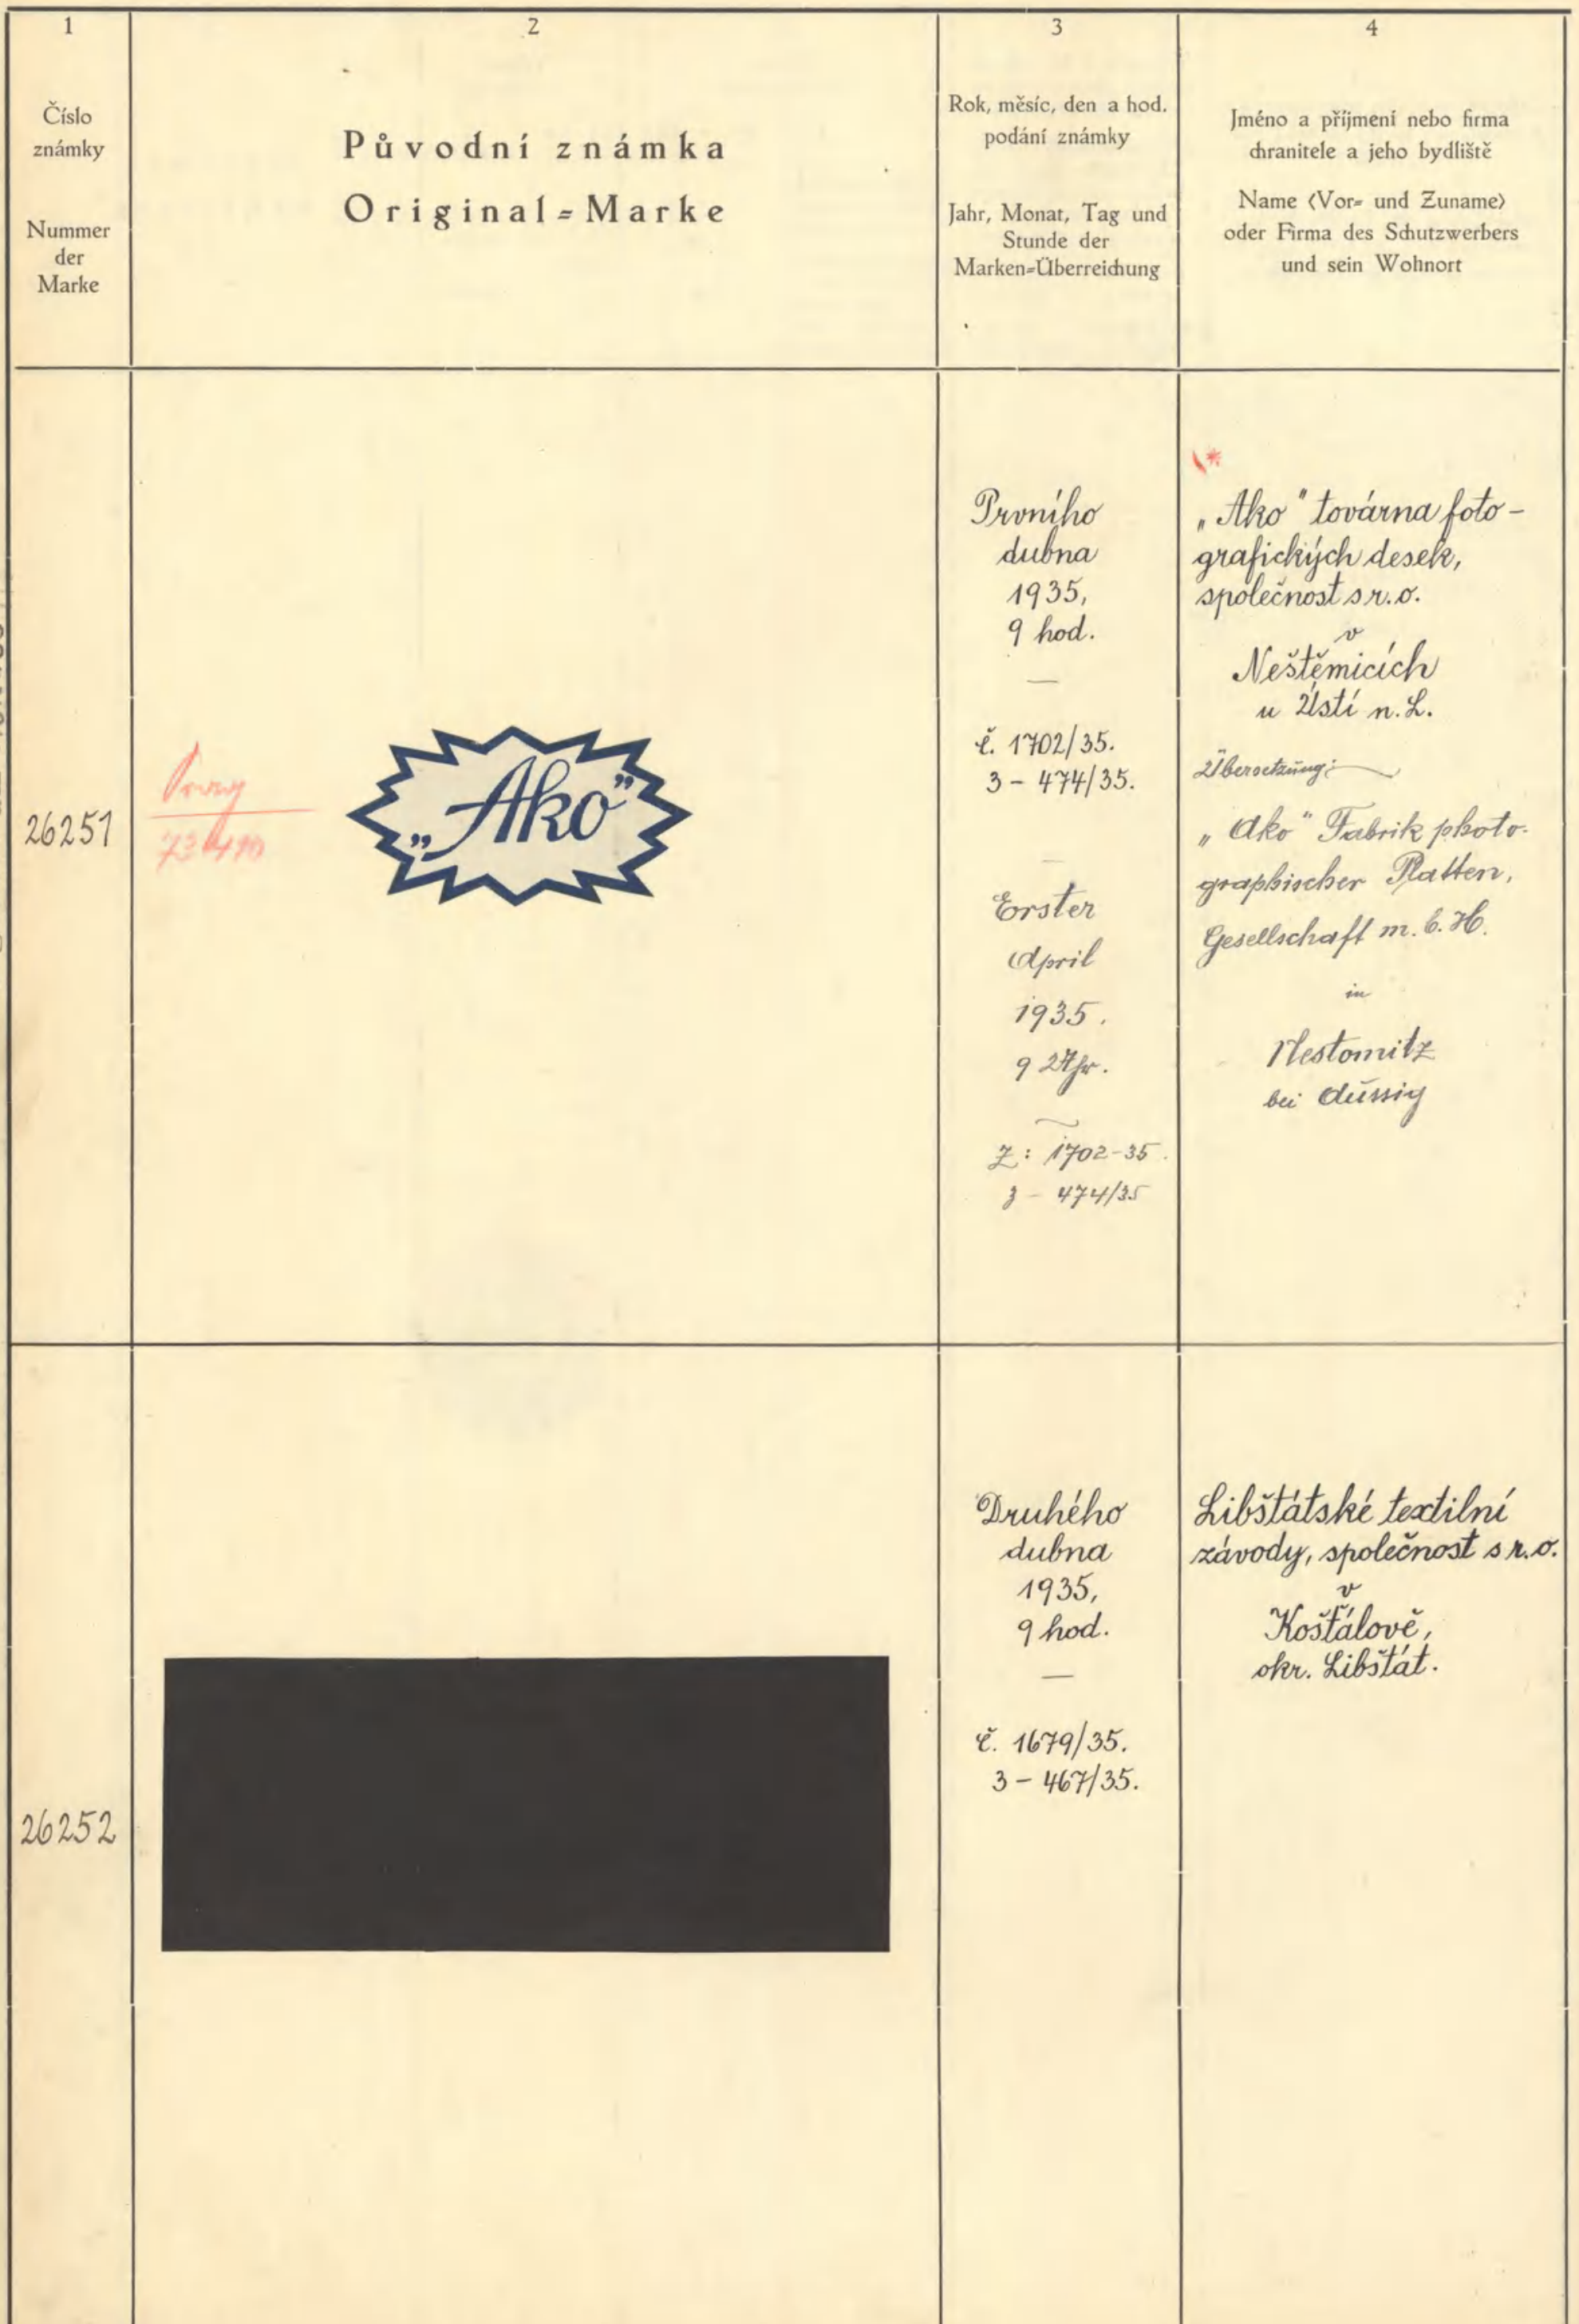 1
Číslo
známky
Nummer
der
Marke
2
Původní známka
Original=Marke
3
Rok, měsíc, den a hod.
podání známky
Jahr, Monat, Tag und
Stunde der
Marken=Überreichung
4
Jméno a příjmení nebo firma
chranitele a jeho bydliště
Name (Vor= und Zuname)
oder Firma des Schutzwerbers
und sein Wohnort
26251
„Ako”
Prvního
dubna
1935,
9 hod.
—
č. 1702/35.
3 – 474/35.
—
Erster
April
1935.
9 Uhr.
Z: 1702-35.
3 – 474/35
„Ako" továrna foto-
grafických desek,
společnost s r. o.
v
Neštěmicích
u Ústí n. L.
Übersetzung:
„Ako" Fabrik photo-
graphischer Platten,
Gesellschaft m. b. H.
in
Nestomitz
bei Aussig
26252
Druhého
dubna
1935,
9 hod.
—
č. 1679/35.
3 – 467/35.
Libštátské textilní
závody, společnost s r. o.
v
Košťálově,
okr. Libštát.